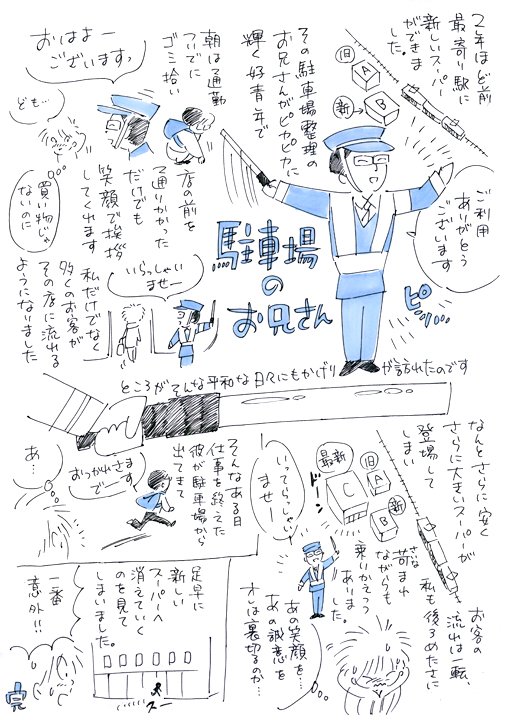 2年ほど前
最寄り駅に
新しいスーパー
ができま
した。
旧
A
新
B
その駐車場整理の
お兄さんがピカピカに
輝く好青年で
ご利用
ありがとう
ございます
ピッ
駐車場
の
お兄さん
朝は通勤
ついでに
ゴミ拾い
おはよー
ございまーす
ども…
店の前を
通りかかった
だけでも
笑顔で挨拶
してくれます
買い物じゃ
ないのに
いらっしゃい
ませー
私だけでなく
多くのお客が
その店に流れる
ようになりました
ところがそんな平和な日々にもかげり
が訪れたのです
なんとさらに安く
さらに大きいスーパーが
登場して
しまい
最新
C
旧
A
新
B
ドーン
お客の
流れは一転、
私も後ろめたさに
さな
苛まれ
ながらも
乗りかえつつ
ありま
した。
いってらっしゃい
ませー
あの笑顔を…
あの誠意を
オレは裏切るのか…
そんなある日
仕事を終えた
彼が駐車場から
出てきて
おつかれさま
でーす
あ…
足早に
新しい
スーパーへ
消えていく
のを見て
しまいました。
スー
一番
意外!!
完